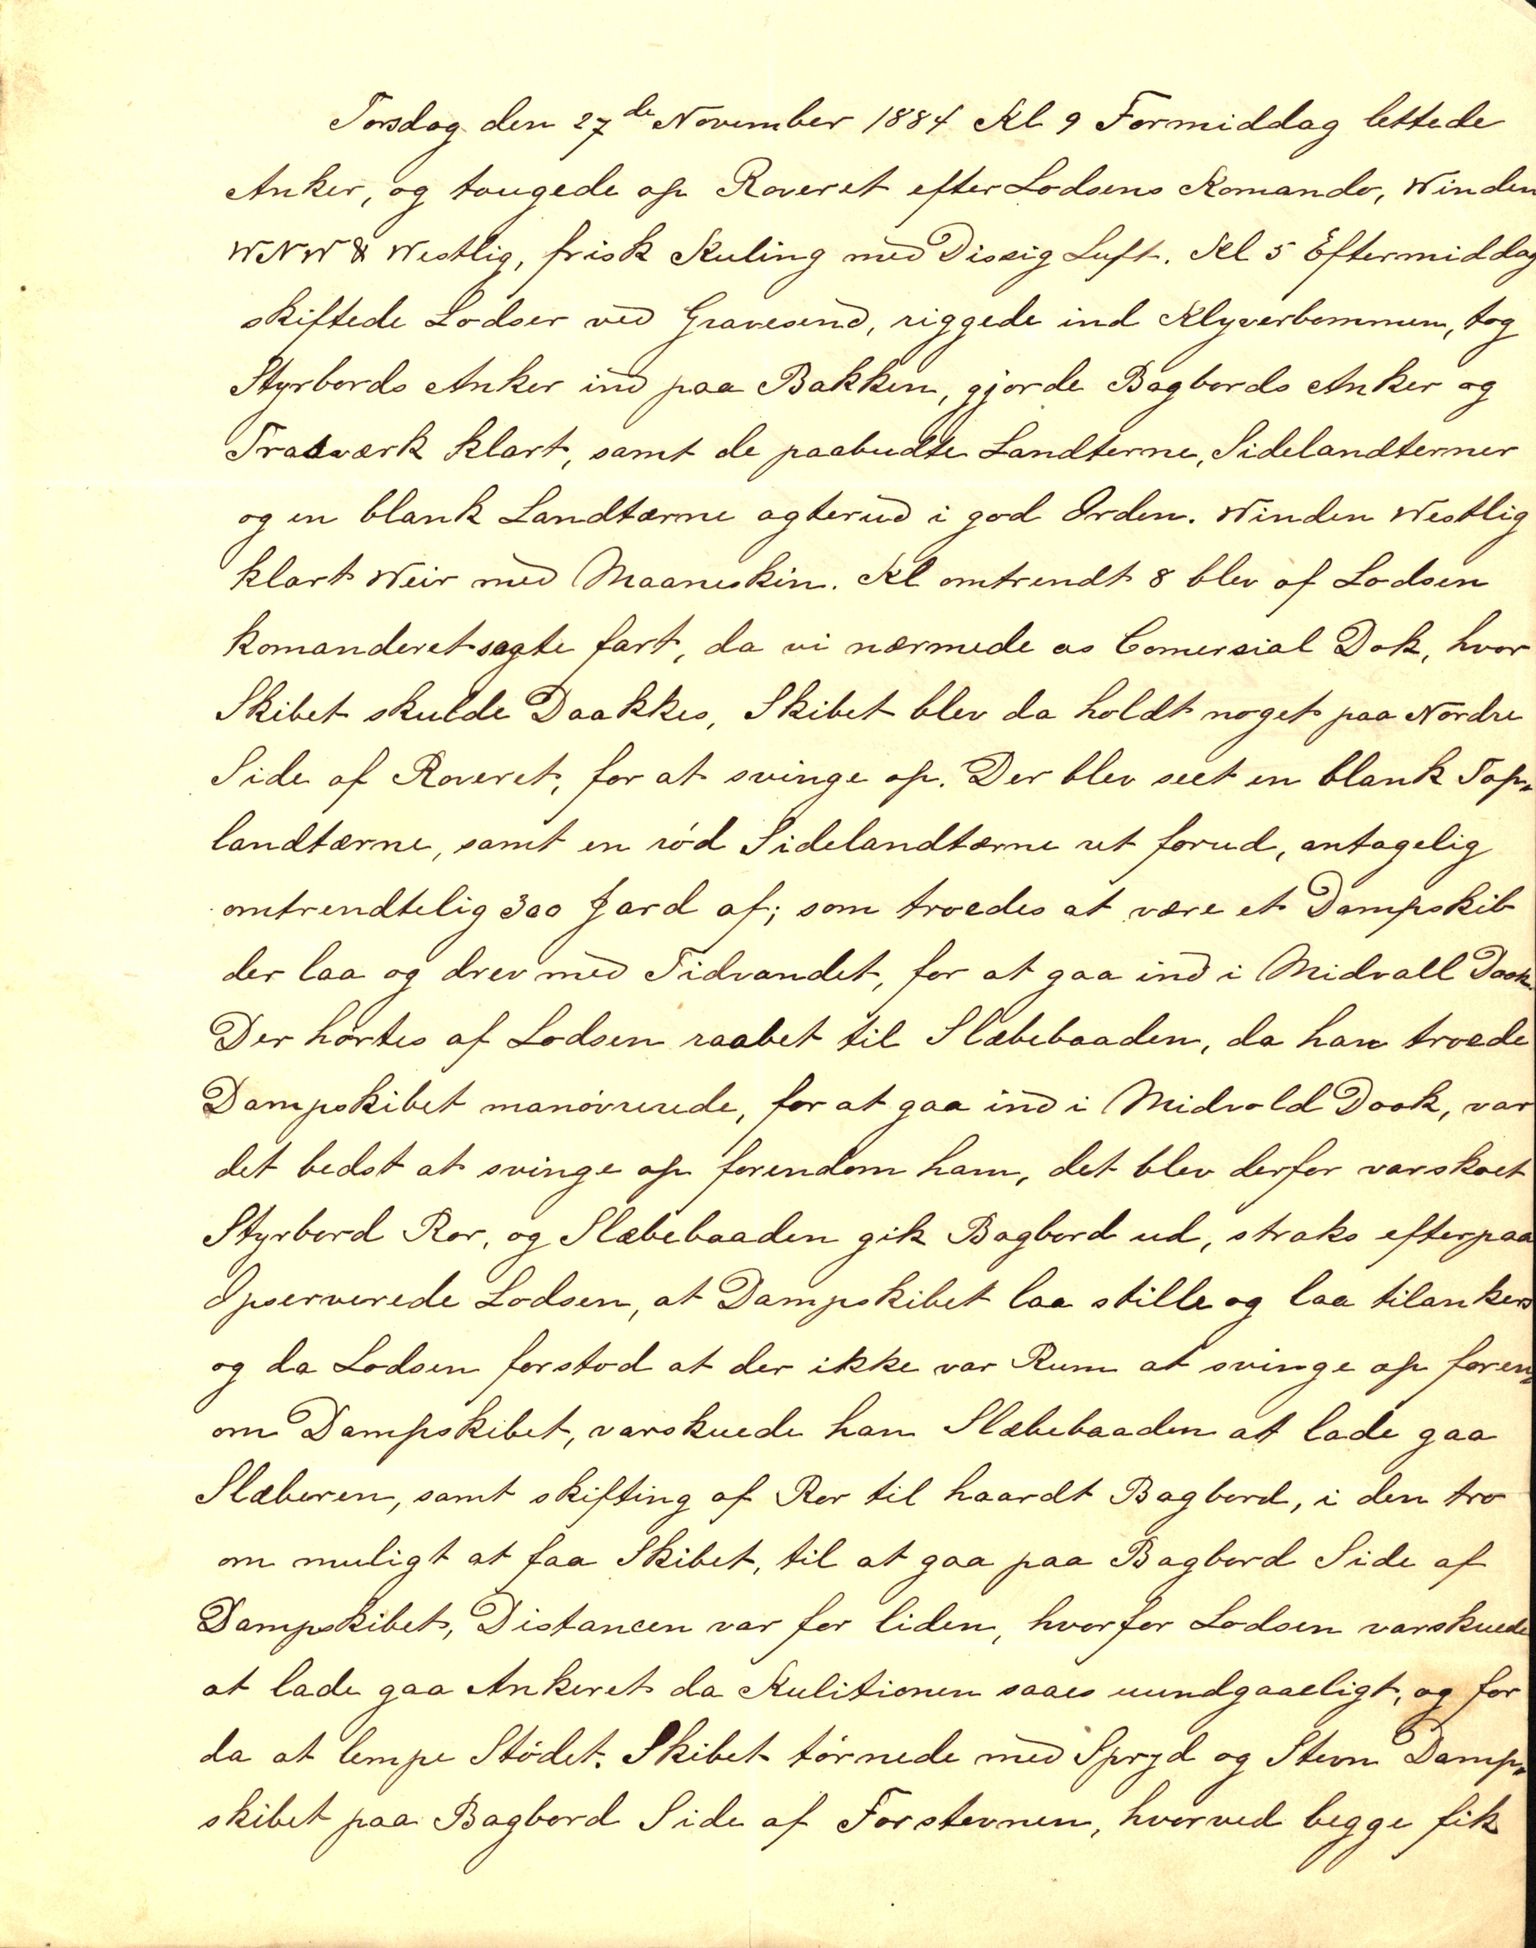 Torsdag den 27de November 1884 Kl 9 Formiddag lettede
Anker, og tougede op Roveret efter Lodsens Komando, Winden
WNW & Westlig, frisk Kuling med Dissig Luft. Kl 5 Eftermiddag
skiftede Lodser ved Gravesend, riggede ind Klyverbommen, tog
Styrbords Anker ind paa Bakken, gjorde Bagbords Anker og
klart, samt de paabudte Landterne, Sidelandterner
og en blank Landtærne agterud i god Orden. Winden Westlig
klart Weir med Maaneskin. Kl omtrendt 8 blev af Lodsen
komanderet sagte fart, da vi nærmede os Comersial Dok, hvor
Skibet skulde Daakkes, Skibet blev da holdt noget paa Nordre
Side af Roveret, for at svinge op. Der blev seet en blank Top„
landtærne, samt en rød Sidelandtærne ret forud, antagelig
omtrendtelig 300 Jard af; som troedes at være et Dampskib
der laa og drev med Tidvandet, for at gaa ind i Midvall Dook.
Der hørtes af Lodsen raabet til Slæbebaaden, da han troede
Dampskibet manøvrerede, for at gaa ind i Midvold Dook, var
det bedst at svinge op forendom ham, det blev derfor varskoet
Styrbord Ror, og Slæbebaaden gik Bagbord ud, straks efterpaa
Opserverede Lodsen, at Dampskibet laa stille og laa tilankers
og da Lodsen forstod at der ikke var Rum at svinge op foren„
om Dampskibet, varskuede han Slæbebaaden at lade gaa
Slæberen, samt skifting af Ror til haardt Bagbord, i den tro
om muligt at faa Skibet, til at gaa paa Bagbord Side af
Dampskibet, Distancen var for liden, hvorfor Lodsen varskuede
at lade gaa Ankeret da Kulitionen saaes uundgaaeligt, og for
da at lempe Stødet. Skibet tørnede med Spryd og Stevn Damp„
skibet paa Bagbord Side af Forstevnen, hvorved begge fik